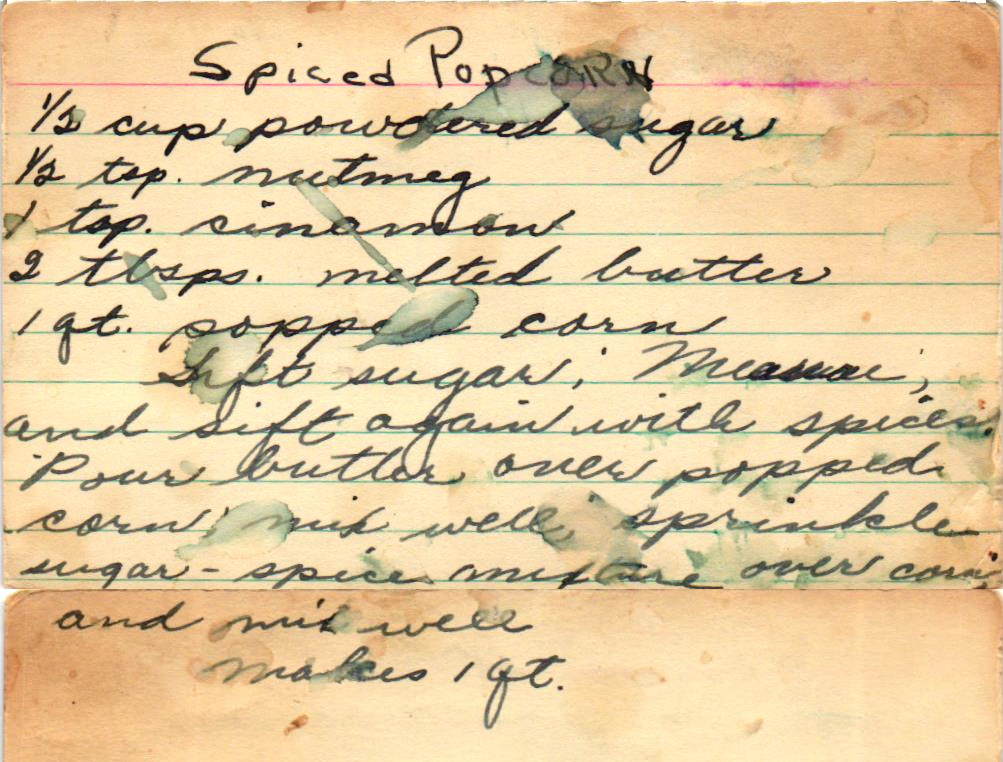 Spiced PopcORN
1/2 cup powdered sugar
1/2 tsp. nutmeg
1 tsp. cinamon
2 tbsps. melted butter
1 qt. popped corn
Sift sugar; Measure,
and sift again with spices.
Pour butter over popped
corn mix well sprinkle
sugar-spice mixture over corn,
and mix well
Makes 1 qt.